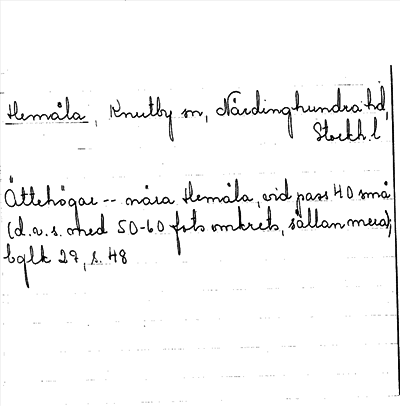 Hemåla, Knutby sn, Närdinghundra hd,
Stockh. l
Ättehögar -- nära Hemåla, vid pass 40 små
(d.v.s. med 50-60 fots omkrets, sällan mera),
bglk 29, s. 48